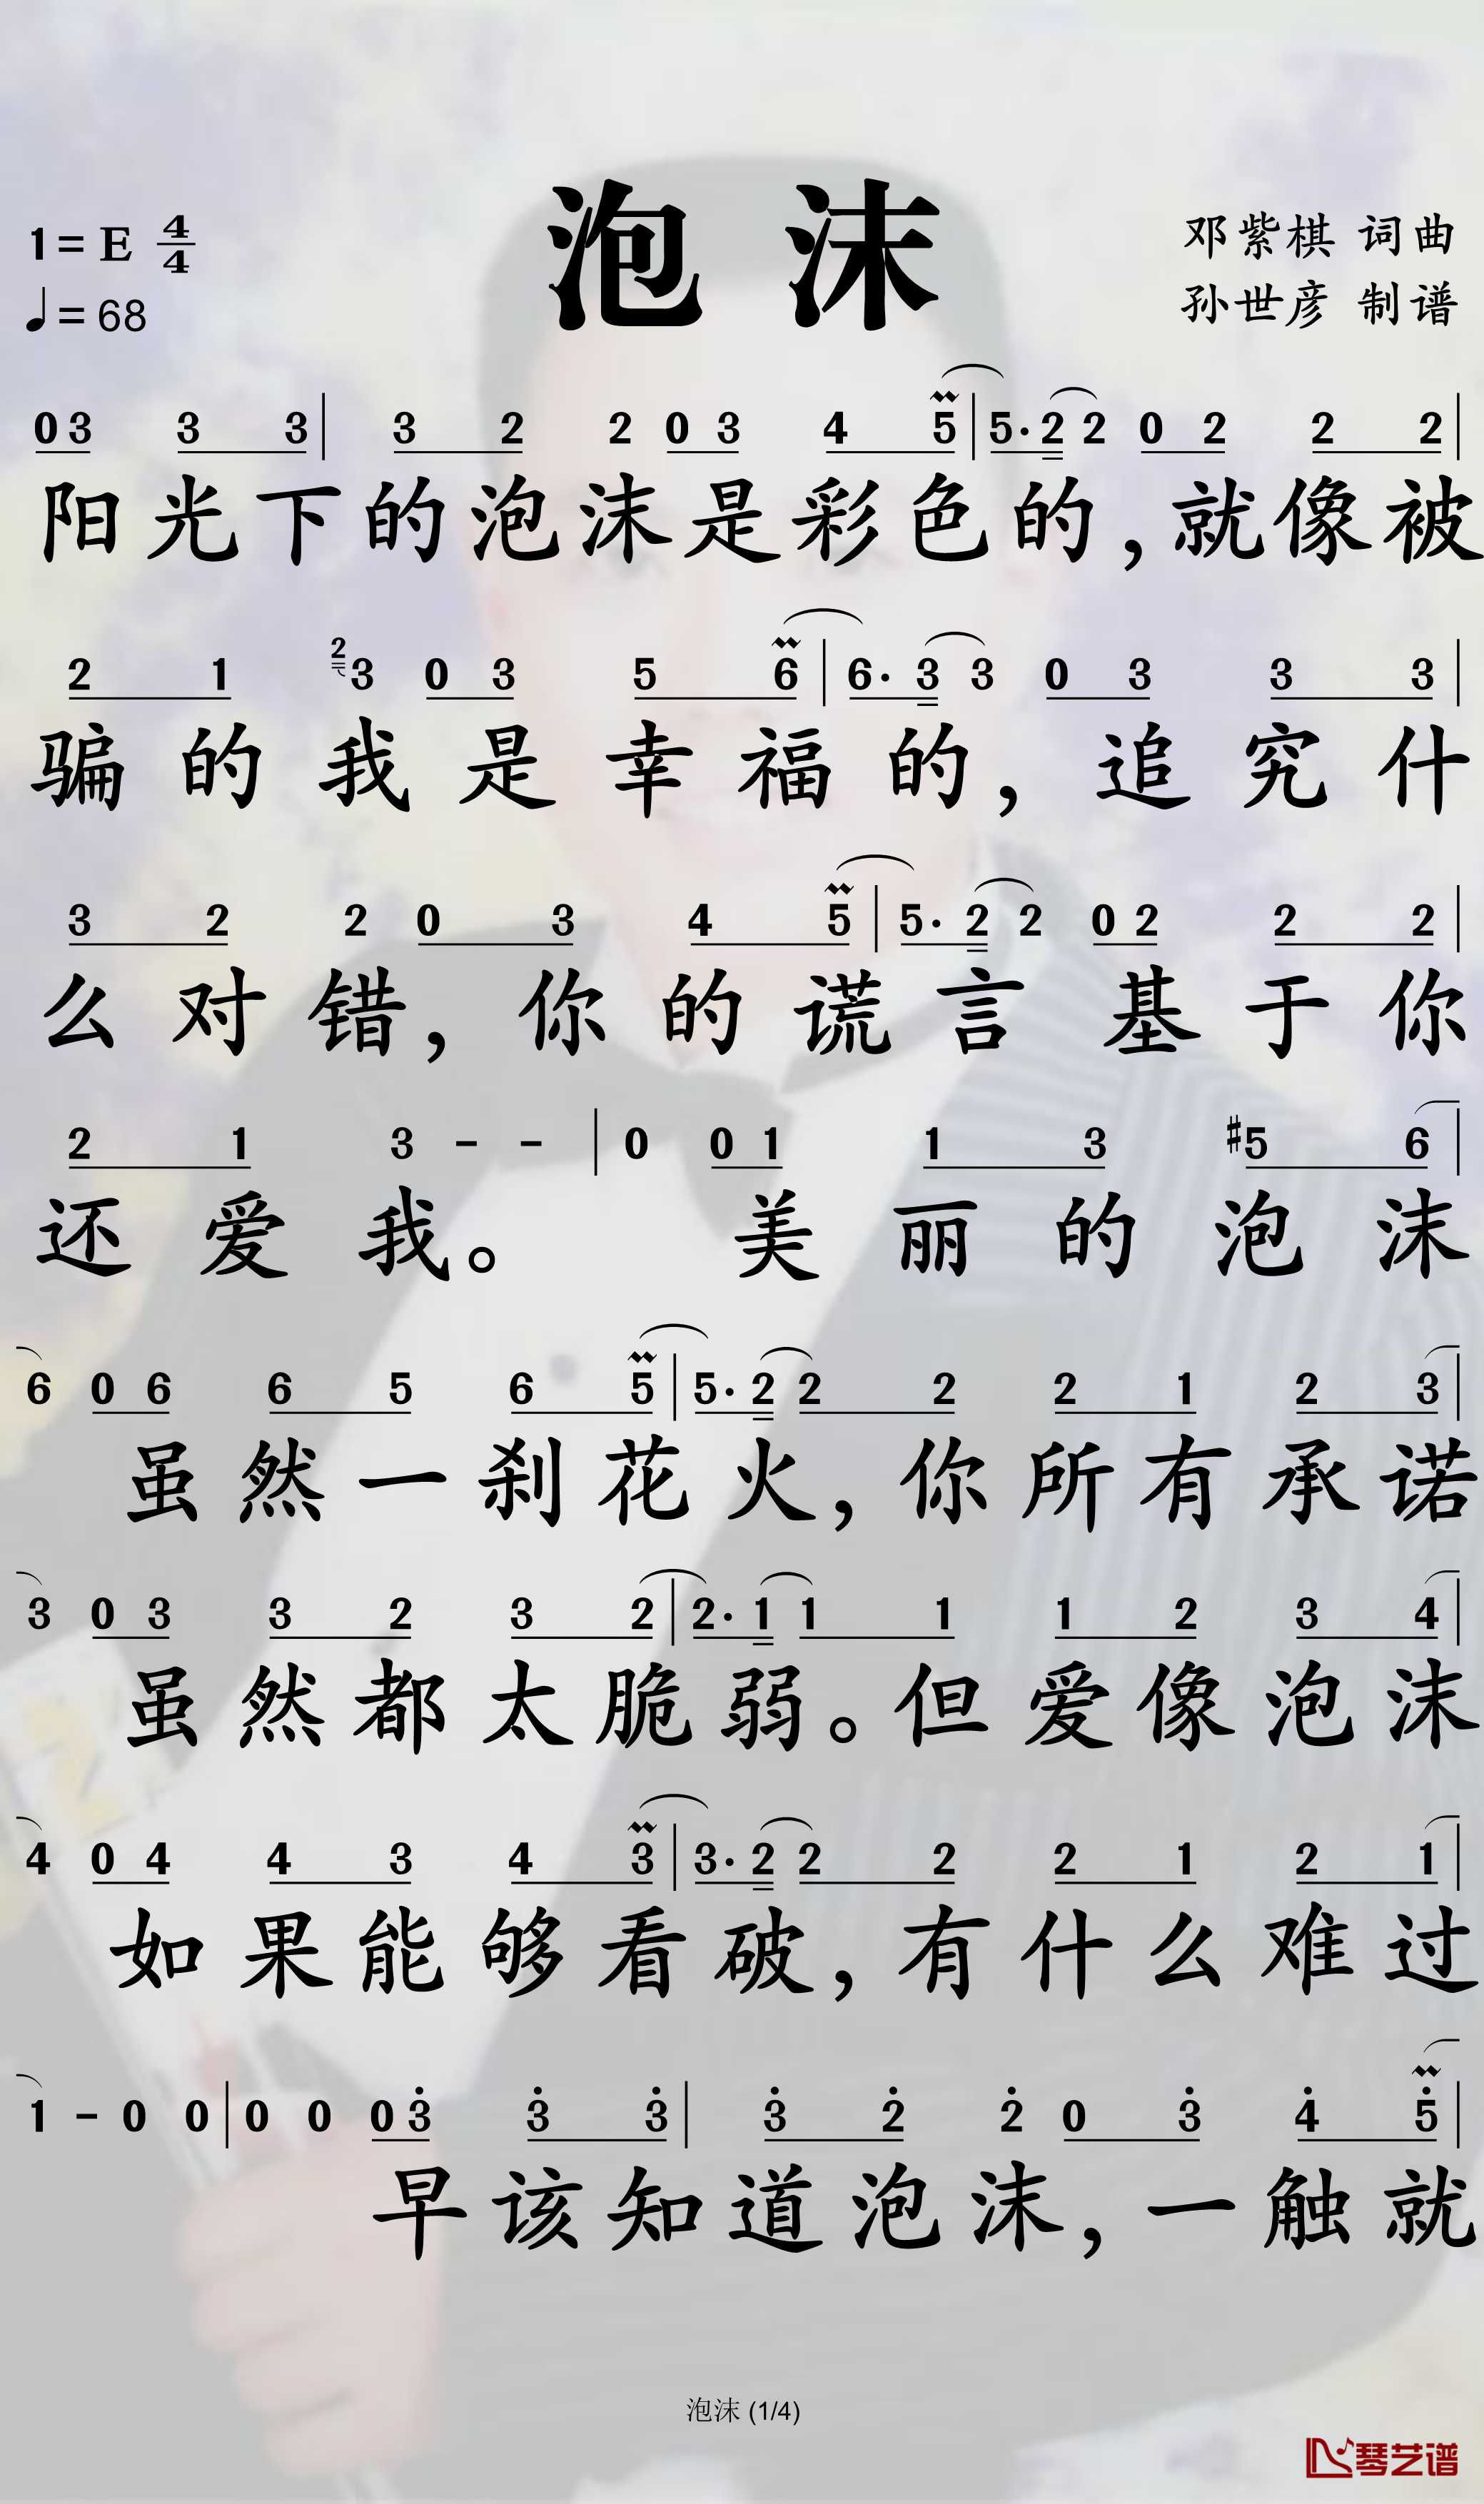 泡沫
1=E 4/4
♩=68
邓紫棋 词曲
孙世彦 制谱
03 3 3 | 3 2 2 0 3 4 5 | 5· 2 2 0 2 2 2 |
阳光下的泡沫是彩色的,就像被
2 1 2 3 0 3 5 6 | 6· 3 3 0 3 3 3 |
骗的我是幸福的,追究什
3 2 2 0 3 4 5 | 5· 2 2 0 2 2 2 |
么对错,你的谎言基于你
2 1 3 - - | 0 0 1 1 3 #5 6 |
还爱我。 美丽的泡沫
6 0 6 6 5 6 5 | 5· 2 2 2 2 1 2 3 |
虽然一刹花火,你所有承诺
3 0 3 3 2 3 2 | 2· 1 1 1 1 2 3 4 |
虽然都太脆弱。但爱像泡沫
4 0 4 4 3 4 3 | 3· 2 2 2 2 1 2 1 |
如果能够看破,有什么难过
1 - 0 0 | 0 0 0 3 3 3 | 3 2 2 0 3 4 5 |
早该知道泡沫,一触就
泡沫 (1/4)
琴艺谱